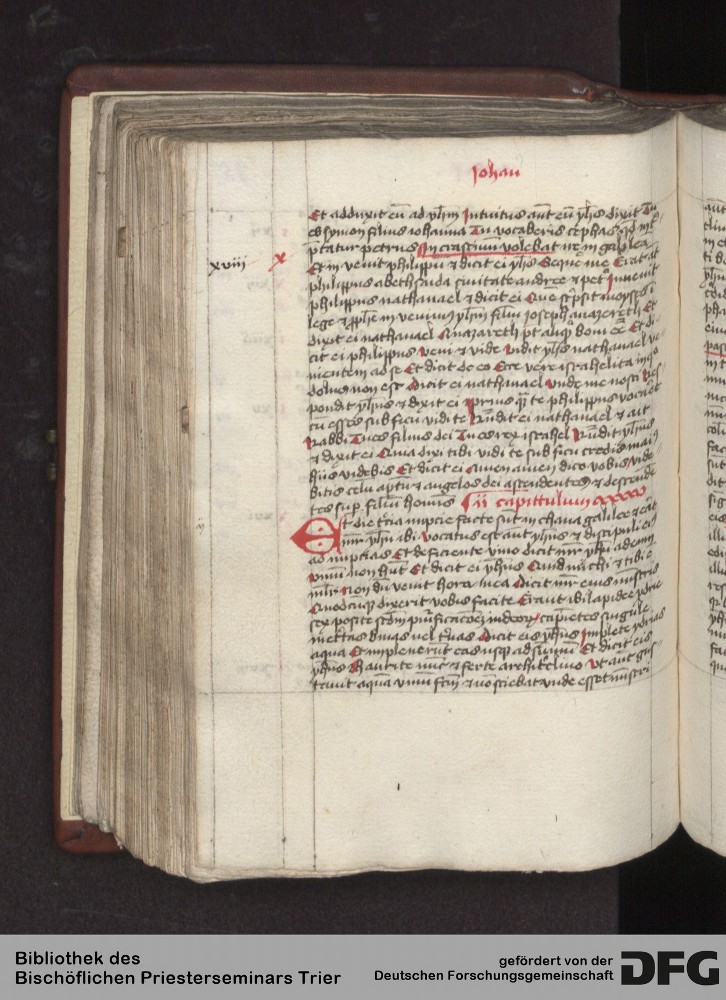 Johan
Et adduxit eū ad yhm Intuitus aut eū yhs dixit Tu
es symon filius iohanna Tu vocaberis cephas qd int
ptatur petrus In crastinum volebat ire in galilea
xviii x Et invenit philippū et dicit ei yhs Sequere me Erat at
philippus abethsaida civitate andree et petri Invenit
philippus nathanael et dicit ei Quē scpsit moyses i
lege et pphe invenimus yhm filiū ioseph anazareth Et
dixit ei nathanael Anazareth pt aliqd boni eē Et di
cit ei philippus veni et vide vidit yhs nathanael ve
nientem ad se Et dicit de eo Ecce vere israhelita in quo
dolus non est Dicit ei nathanael unde me nosti Res
pondit yhus et dixit ei prius q te philippus vocaēt
cū esses sub ficu vidi te Rūdit ei nathanael et ait
Rabbi Tu es filius dei Tu es rex israhel Rūdit yhus
et dixit ei Quia dixi tibi vidi te sub ficu credis mai
hiis videbis Et dicit ei Amen amen dico vobis vide
bitis celū aptū et angelos dei ascendentes et descende
tes sup filiū hominis ii capittulum
Et die tcia nupcie facte sūt in chana galilee et erat
mr yhu ibi vocatus est aut yhus et discipuli ei
ad nupcias Et deficiente vino dicit mr yhu ad eum
vinū non hūt Et dicit ei yhus Quid michi et tibi e
mlr non dū venit hora mea Dicit mr eius ministris
Quodcūqz dixerit vobis facite Erant ibi lapidee ydrie
sex posite scdm purificacōem iudeorz capientes singule
metretas binas vel trnas Dicit eis yhus Implete ydrias
aqua Et impleverūt eas usqz ad sūmū Et dicit eis
yhus haurite nūc et ferte architriclino Ut aut gus
tavit aquā vinū fcm et nō sciebat unde esset ministri
Bibliothek des
Bischöflichen Priesterseminars Trier
gefördert von der
Deutschen Forschungsgemeinschaft
DFG